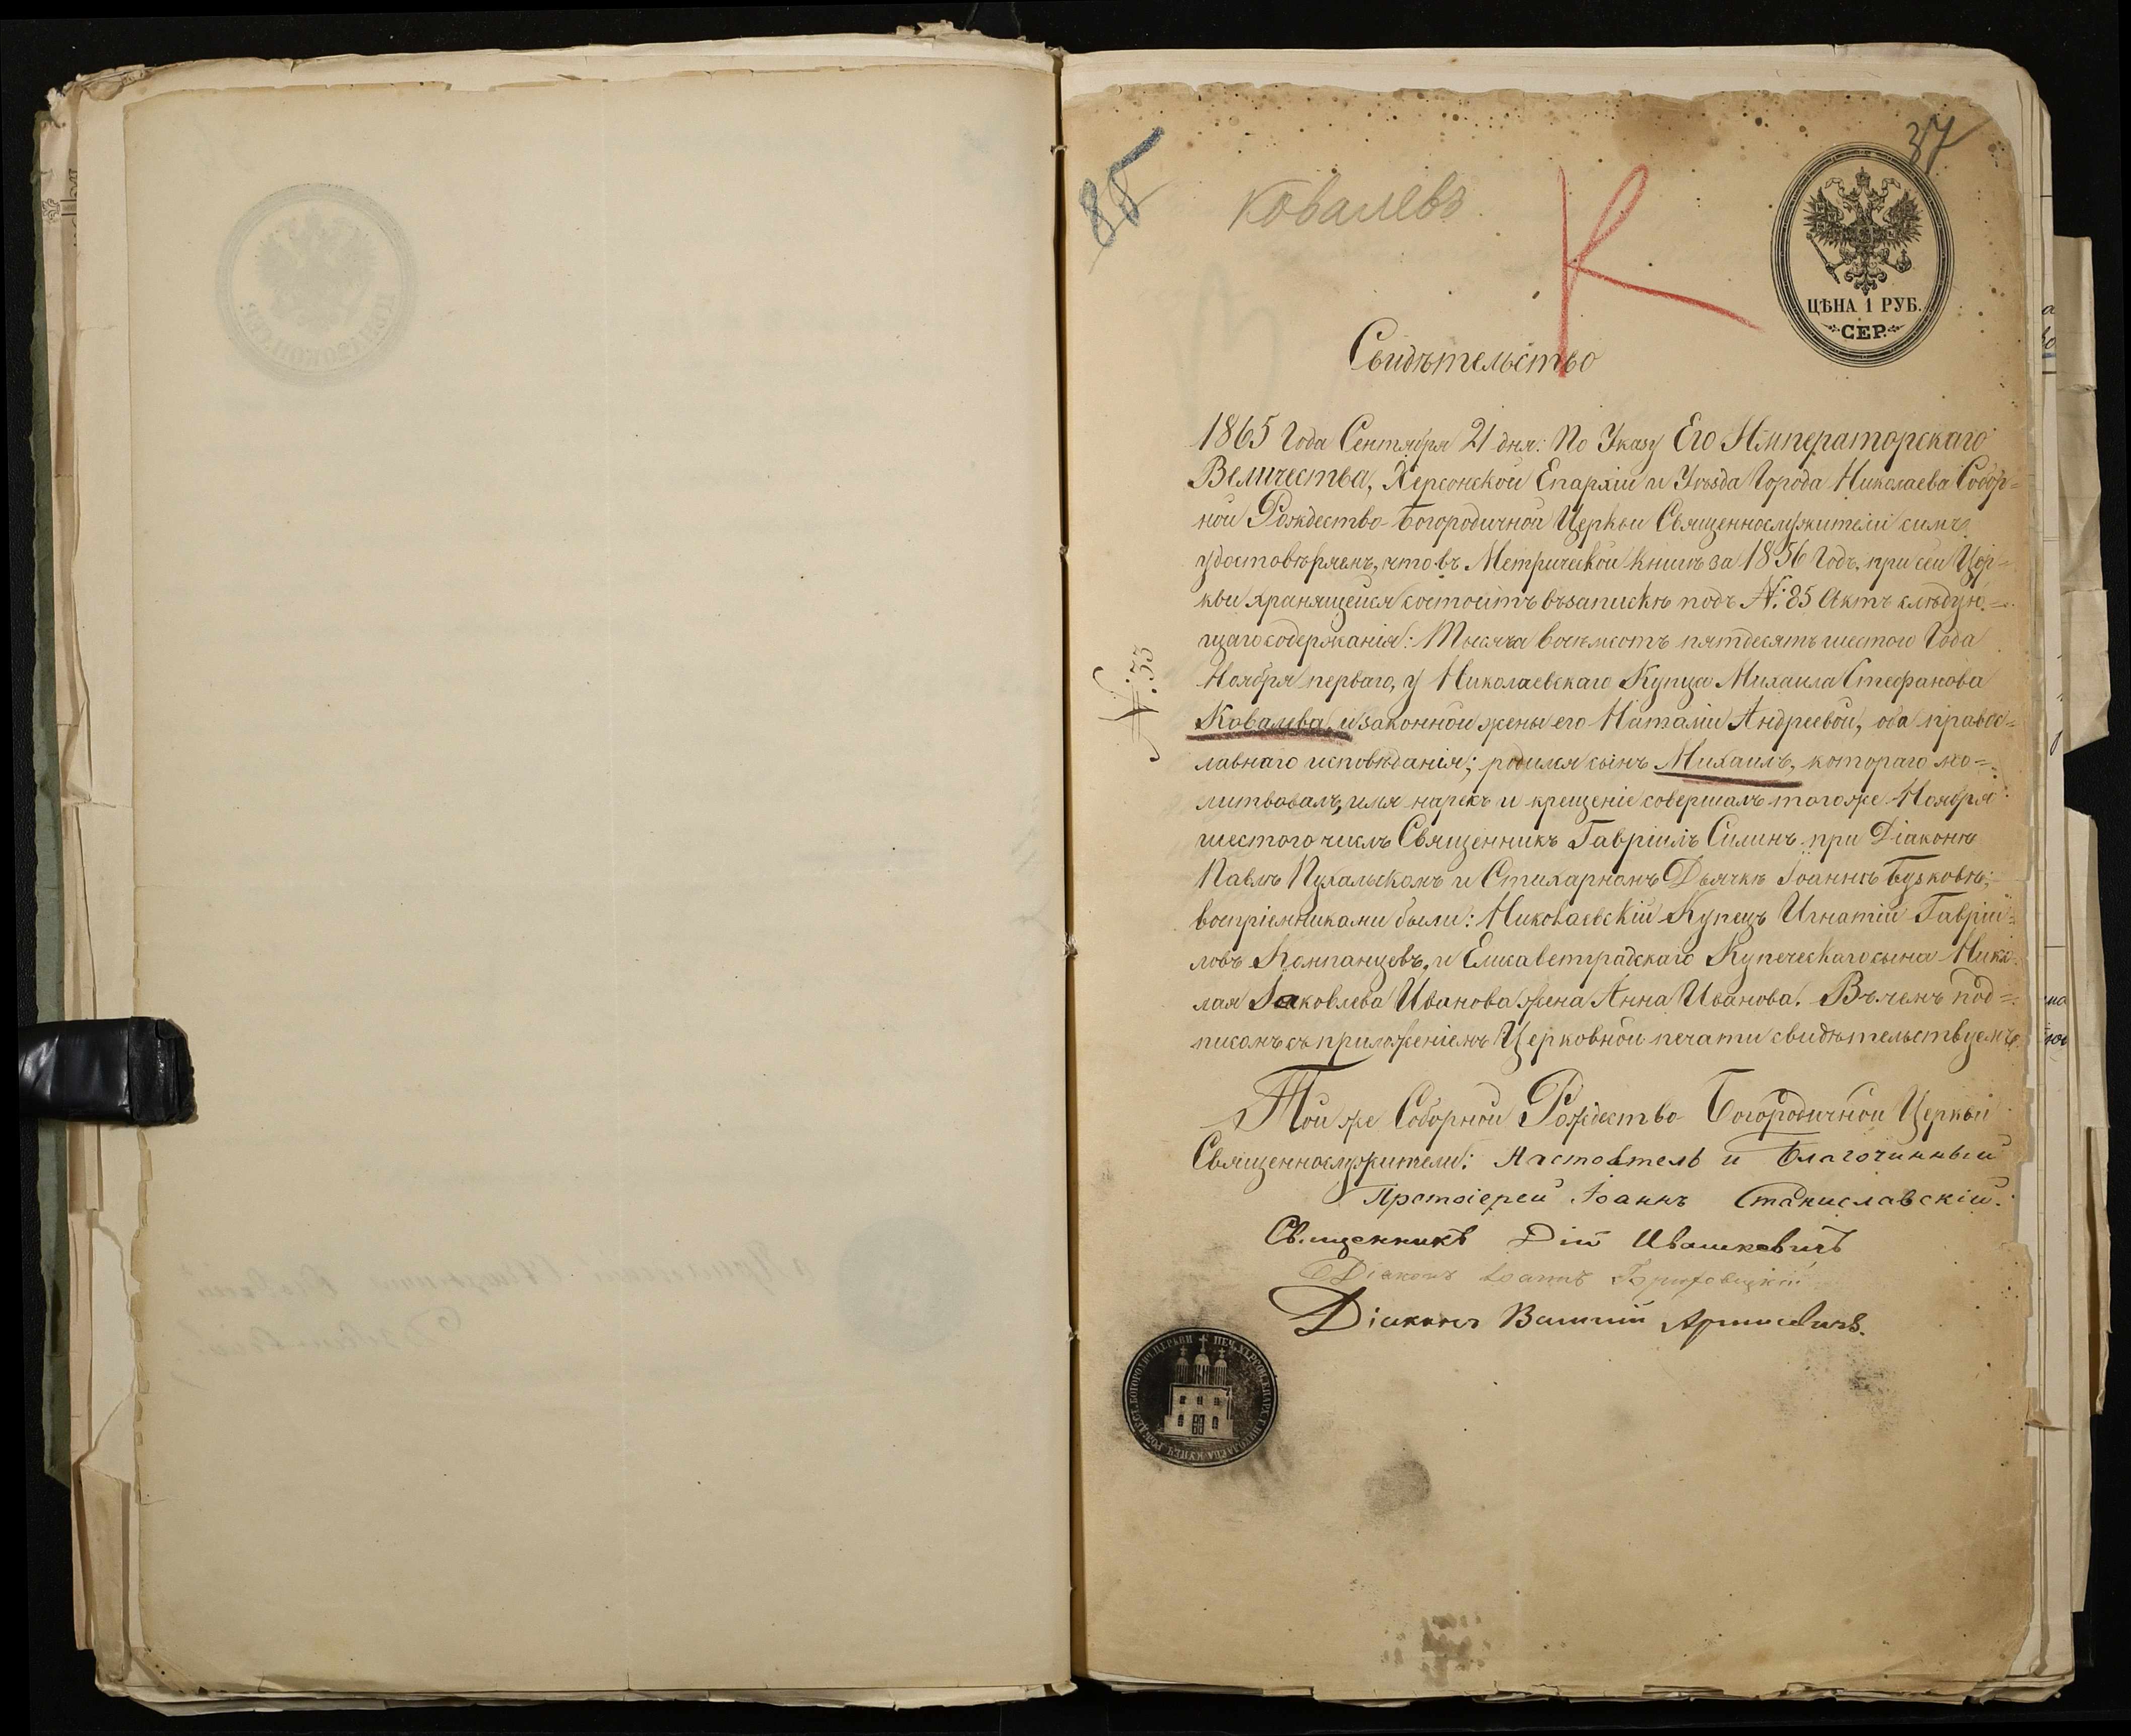 37
85
Ковалевъ
К
ЦѢНА 1 РУБ.
СЕР.
Свидѣтельство
1865 Года Сентября 21 дня: По Указу Его Императорскаго
Величества, Херсонской Епархіи и Уѣзда Города Николаева Собор=
ной Рождество-Богородичной Церкви Священнослужители симъ
удостовѣряемъ, что въ Метрической книгѣ за 1856 Годъ, при сей Цер=
кви хранящейся состоитъ въ запискѣ подъ №: 85 Актъ слѣдую=
щаго содержанія: Тысяча восемсотъ пятдесятъ шестого Года
Ноября перваго, у Николаевскаго Купца Михаила Стефанова
Ковалева, и законной жены его Наталіи Андреевой, оба правос=
лавнаго исповѣданія; родился сынъ Михаилъ, котораго мо=
литвовалъ, имя нарекъ и крещеніе совершалъ тогоже Ноября
шестого числъ Священникъ Гавріилъ Силинъ при Діаконѣ
Павлѣ Пухальскомъ и Стихарномъ Дьячкѣ Іоаннѣ Бузковѣ;
воспріемниками были: Николаевскій Купецъ Игнатій Гавріи=
ловъ Компанцевъ, и Елисаветградскаго Купеческаго сына Нико=
лая Іаковлева Иванова жена Анна Иванова. Въ чемъ под=
писомъ съ приложеніемъ Церковной печати свидѣтельствуемъ.
№: 35
Той же Соборной Рождество Богородичной Церкви
Священнослужители: Настоятель и Благочинный
Протоіерей Іоаннъ Станиславскій.
Священникъ Дій Ивашкевичъ
Діаконъ Іоаннъ
Діаконъ
ПЕЧ. ХЕРСОН. ЕПАРХ. Г. НИКОЛАЕВА КУПЕЧ. РОЖДЕСТ. БОГОРОДИЧ. ЦЕРКВИ